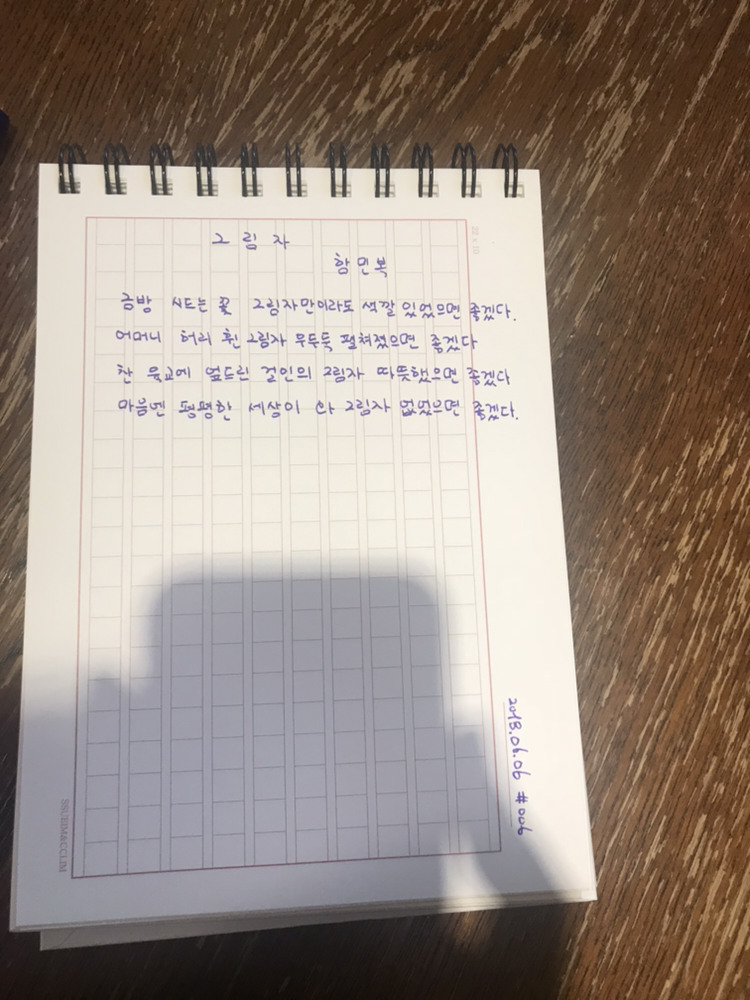 그림자
함민복
금방 시드는 꽃 그림자만이라도 색깔 있었으면 좋겠다.
어머니 허리 휜 그림자 우두둑 펼쳐졌으면 좋겠다
찬 육교에 엎드린 걸인의 그림자 따뜻했으면 좋겠다
마음엔 평평한 세상이 와 그림자 없었으면 좋겠다.
2018.06.06 #006